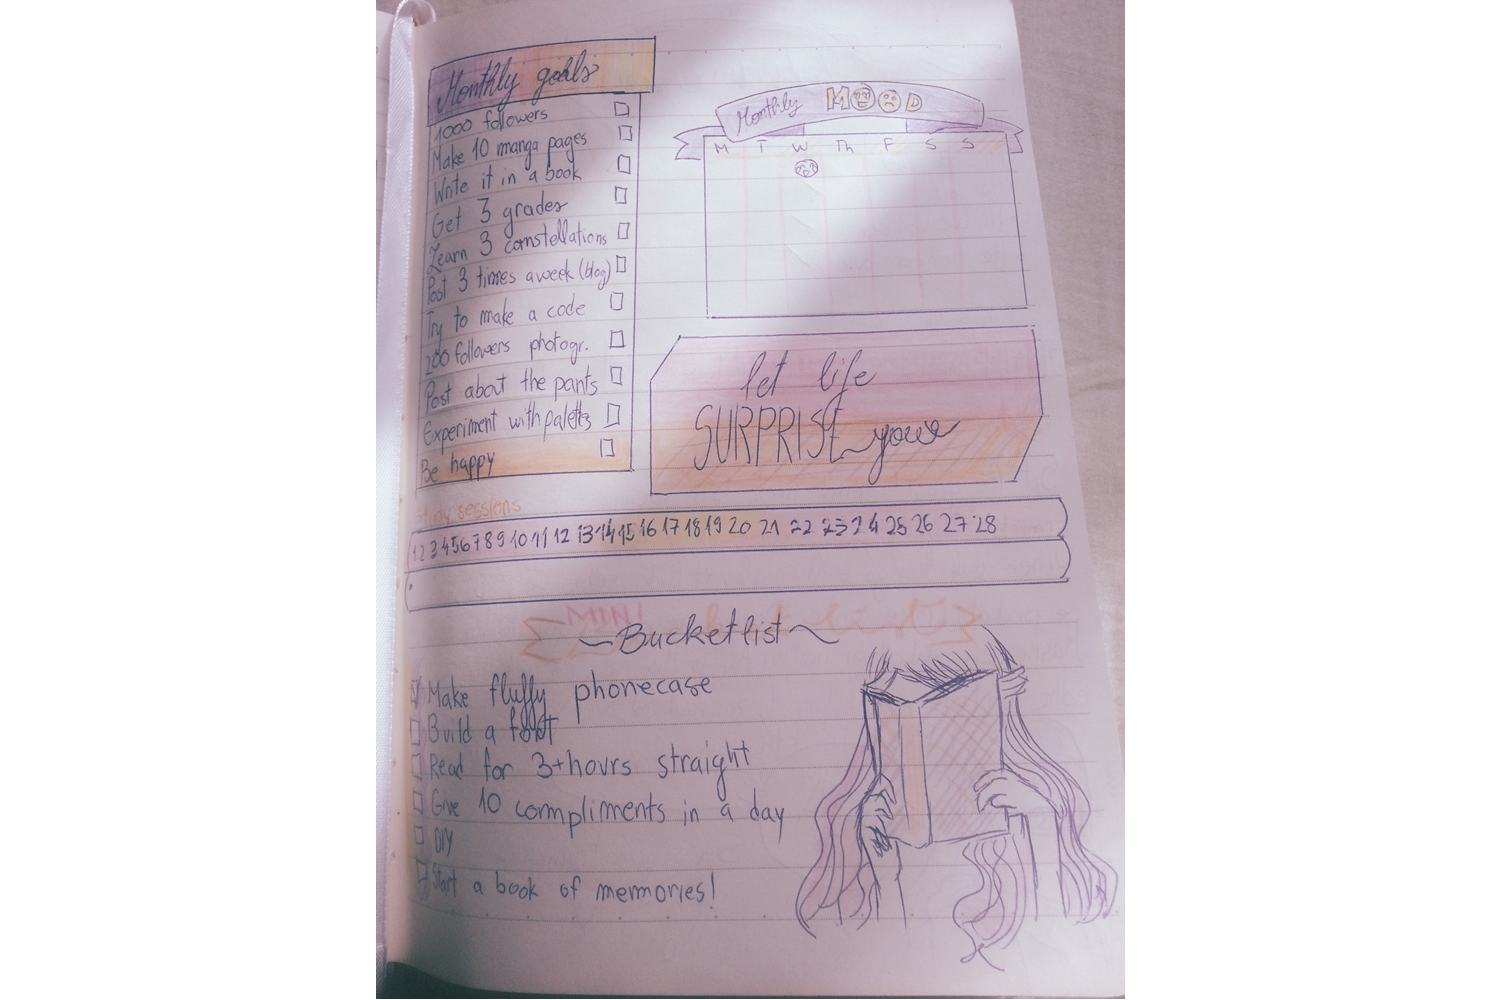 Monthly goals
1000 followers
Make 10 manga pages
Write it in a book
Get 3 grades
Learn 3 constellations
Post 3 times a week (blog)
Try to make a code
200 followers photogr.
Post about the pants
Experiment with paletts
Be happy
Monthly MOOD
M T W Th F S S
let life
SURPRISE youu
Study sessions
1 2 3 4 5 6 7 8 9 10 11 12 13 14 15 16 17 18 19 20 21 22 23 24 25 26 27 28
~Bucketlist~
Make fluffy phonecase
Build a fort
Read for 3+hours straight
Give 10 compliments in a day
DIY
Start a book of memories!